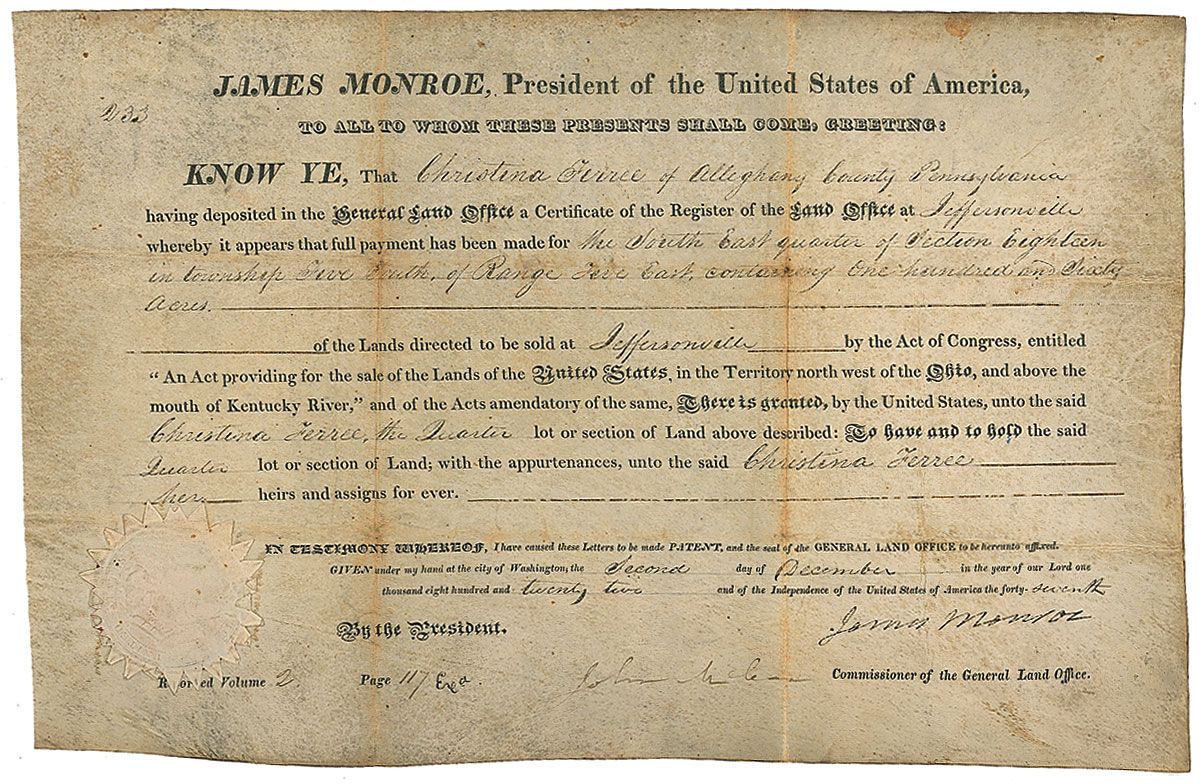 JAMES MONROE, President of the United States of America,
233
TO ALL TO WHOM THESE PRESENTS SHALL COME, GREETING:
KNOW YE, That Christina Ferree of Alleghany County Pennsylvania
having deposited in the General Land Office a Certificate of the Register of the Land Office at Jeffersonville
whereby it appears that full payment has been made for the South East quarter of Section Eighteen
in township Five South, of Range Five East, containing One hundred and Sixty
Acres.
of the Lands directed to be sold at Jeffersonville by the Act of Congress, entitled
“ An Act providing for the sale of the Lands of the United States, in the Territory north west of the Ohio, and above the
mouth of Kentucky River,” and of the Acts amendatory of the same, There is granted, by the United States, unto the said
Christina Ferree, the Quarter lot or section of Land above described: To have and to hold the said
Quarter lot or section of Land; with the appurtenances, unto the said Christina Ferree
her heirs and assigns for ever.
IN TESTIMONY WHEREOF, I have caused these Letters to be made PATENT, and the seal of the GENERAL LAND OFFICE to be hereunto affixed.
GIVEN under my hand at the city of Washington, the Second day of December in the year of our Lord one
thousand eight hundred and twenty two and of the Independence of the United States of America the forty-seventh
James Monroe
By the President.
Recorded Volume 2. Page 117 Exd. John McLean Commissioner of the General Land Office.